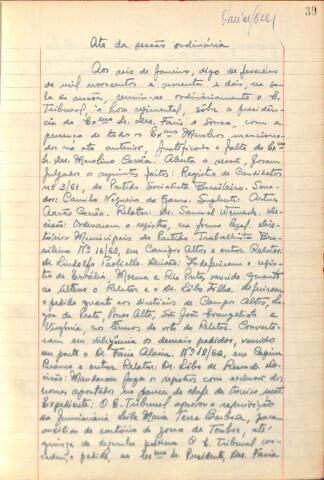 39
Ata da sessão ordinária
Aos seis de Janeiro, digo de fevereiro
de mil novecentos e sessenta e dois, na sa-
la de sessões, reuniu-se ordinariamente o E.
Tribunal, à hora regimental, sob a presidên-
cia do Exmo Sr. Des. Faria e Sousa, com a
presença de todos os Exmos Membros menciona-
dos na ata anterior, justificada a falta do Exmo
Sr. Des. Corrêa. Aberta a sessão, foram
julgados os seguintes feitos: Registro de Candidatos
nº 3/61, do Partido Socialista Brasileiro. Sena-
dor: Camilo Nogueira da Gama. Suplente: Artur
Corrêa. Relator: Dr. Samuel Werneck. De-
cisão: Ordenaram o registro, na forma legal. Dire-
tórios Municipais do Partido Trabalhista Bra-
sileiro Nº 16/62, em Campos Altos e outros. Relator:
Dr. Lindolfo Paoliello. Decisão: Indeferiram o regis-
tro de Ervália, Moema e Rio Preto, vencido quanto
ao último o Relator e o Dr. Lêbo Filho. Deferiram
o pedido quanto aos diretórios de Campos Altos, La-
goa da Prata, Pouso Alto, São João Evangelista e
Virgínia, nos termos do voto do Relator. Converte-
ram em diligência os demais pedidos, vencido
em parte o Dr. Faria Alvim. Nº 18/62, em Capim
Branco e outros. Relator: Des. de Resende. De-
cisão: Mandaram fazer o registro com exclusão dos
nomes apontados no parecer do chefe de serviço
Expediente: O E. Tribunal aprovou a requisição
da funcionária Leila Maria Terra Barbosa, para
auxiliar do cartório da zona de Tombos, até
quinze de dezembro próximo. O E. Tribunal con-
cedeu, a pedido, ao Exmo Sr. Presidente, Des. Faria